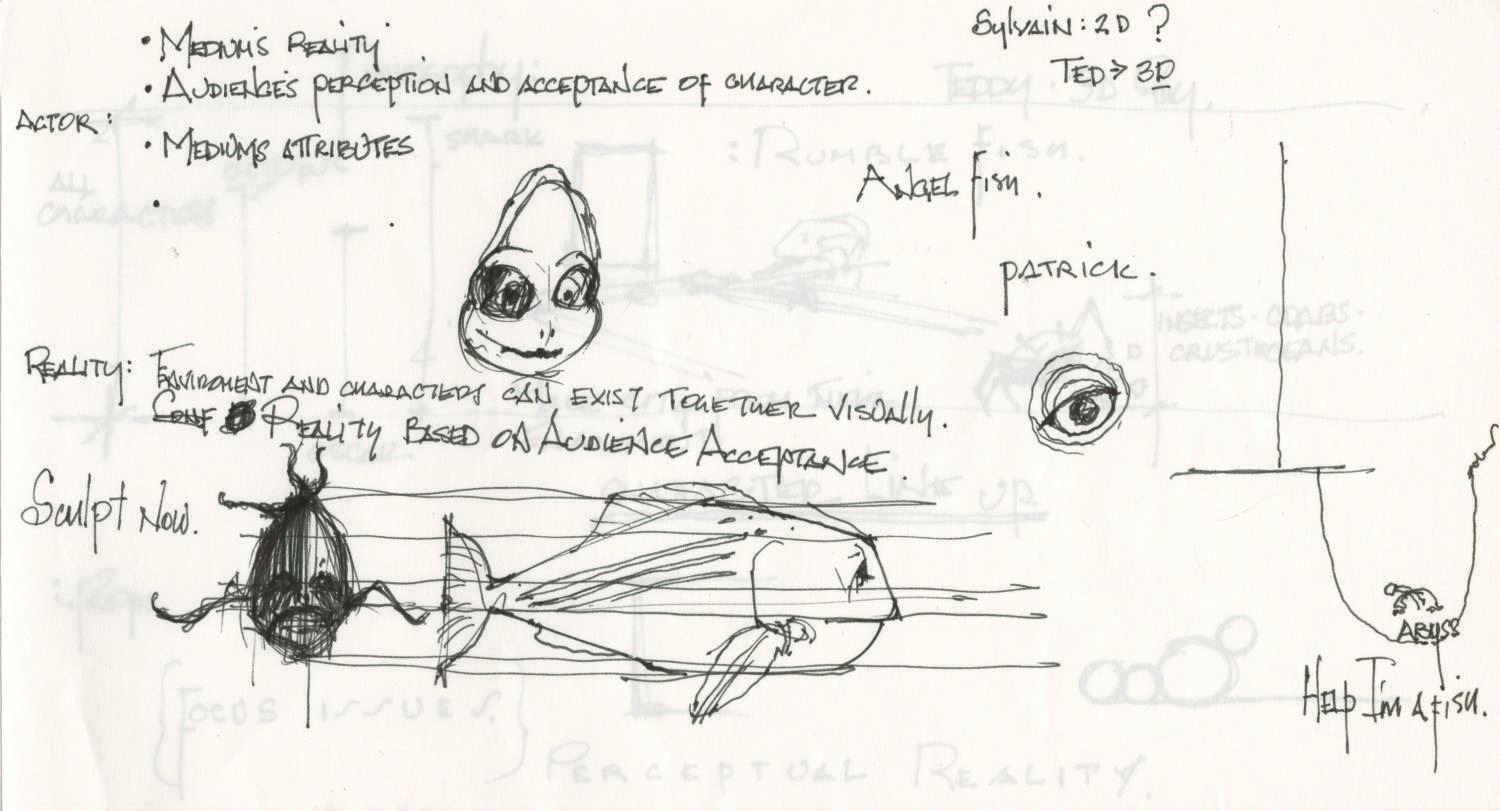 • MEDIUM'S REALITY
• AUDIENCE'S PERCEPTION AND ACCEPTANCE OF CHARACTER.
ACTOR:
• MEDIUMS ATTRIBUTES
•
Sylvain: 2D ?
TED > 3D
TEDDY. 3D
: RUMBLE FISH.
SHARK
ALL
CHARACTERS
ANGEL FISH.
PATRICK.
INSECTS. CRABS.
CRUSTECEANS.
REALITY: ENVIROMENT AND CHARACTERS CAN EXIST TOGETHER VISUALLY.
REALITY BASED ON AUDIENCE ACCEPTANCE.
CHARACTER LINE UP
Sculpt Now.
ABYSS
HELP I'M A FISH.
{FOCUS ISSUES.}
PERCEPTUAL REALITY.